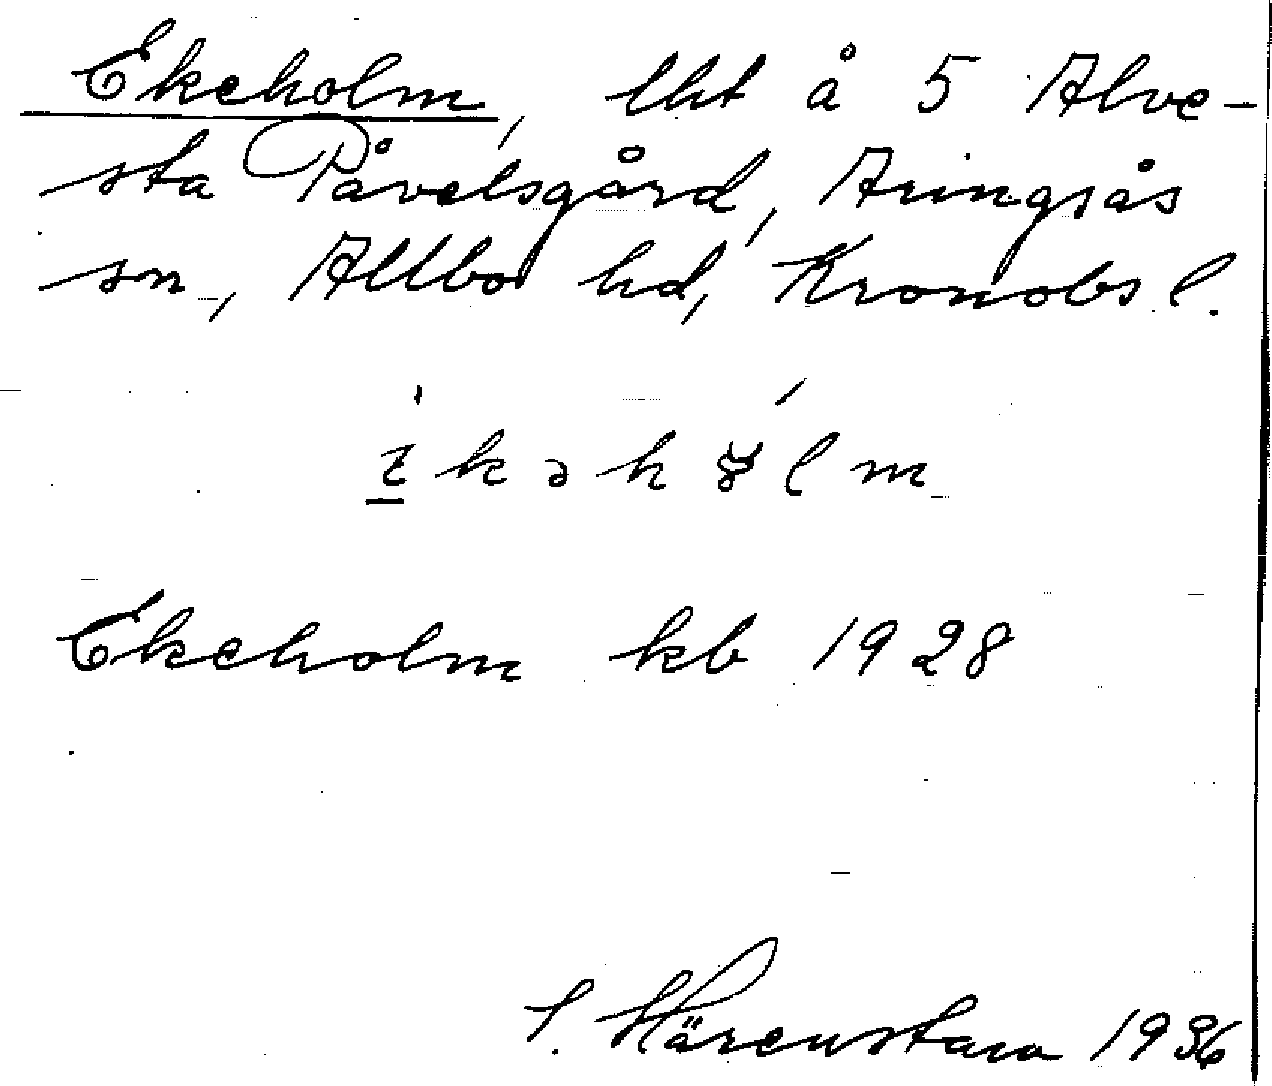 Ekeholm, lht å 5 Alve-
sta Påvelsgård, Aringsås
sn, Allbo hd, Kronobs l.
k ə h l m
Ekeholm kb 1928
1936